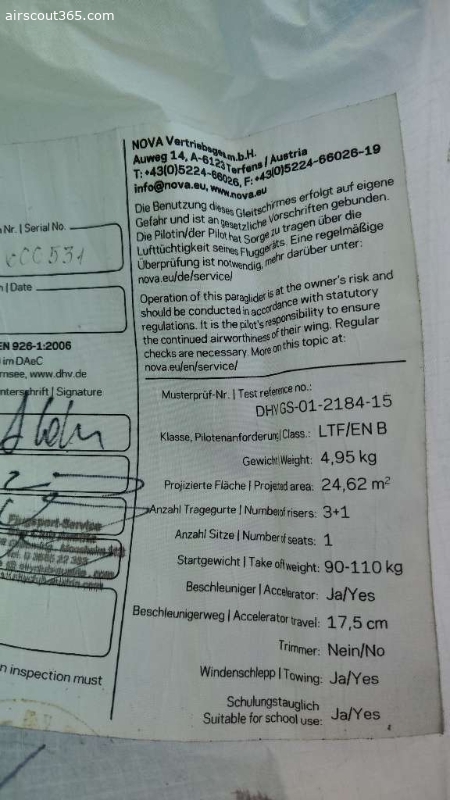 airscout365.com
NOVA Vertriebsges.m.b.H.
Auweg 14, A-6123 Terfens / Austria
T: +43(0)5224-66026, F: +43(0)5224-66026-19
info@nova.eu, www.nova.eu
Die Benutzung dieses Gleitschirmes erfolgt auf eigene
Gefahr und ist an gesetzliche Vorschriften gebunden.
Die Pilotin/der Pilot hat Sorge zu tragen über die
Lufttüchtigkeit seines Fluggeräts. Eine regelmäßige
Überprüfung ist notwendig, mehr darüber unter:
nova.eu/de/service/
Operation of this paraglider is at the owner's risk and
should be conducted in accordance with statutory
regulations. It is the pilot's responsibility to ensure
the continued airworthiness of their wing. Regular
checks are necessary. More on this topic at:
nova.eu/en/service/
Musterprüf-Nr. | Test reference no.:
DHV GS-01-2184-15
Klasse, Pilotenanforderung | Class.: LTF/EN B
Gewicht | Weight: 4,95 kg
Projizierte Fläche | Projected area: 24,62 m²
Anzahl Tragegurte | Number of risers: 3+1
Anzahl Sitze | Number of seats: 1
Startgewicht | Take off weight: 90-110 kg
Beschleuniger | Accelerator: Ja/Yes
Beschleunigerweg | Accelerator travel: 17,5 cm
Trimmer: Nein/No
Windenschlepp | Towing: Ja/Yes
Schulungstauglich
Suitable for school use: Ja/Yes
Nr. | Serial No.
| Date
EN 926-1:2006
im DAeC
nsee, www.dhv.de
nterschrift | Signature
Flugsport-Service
n inspection must